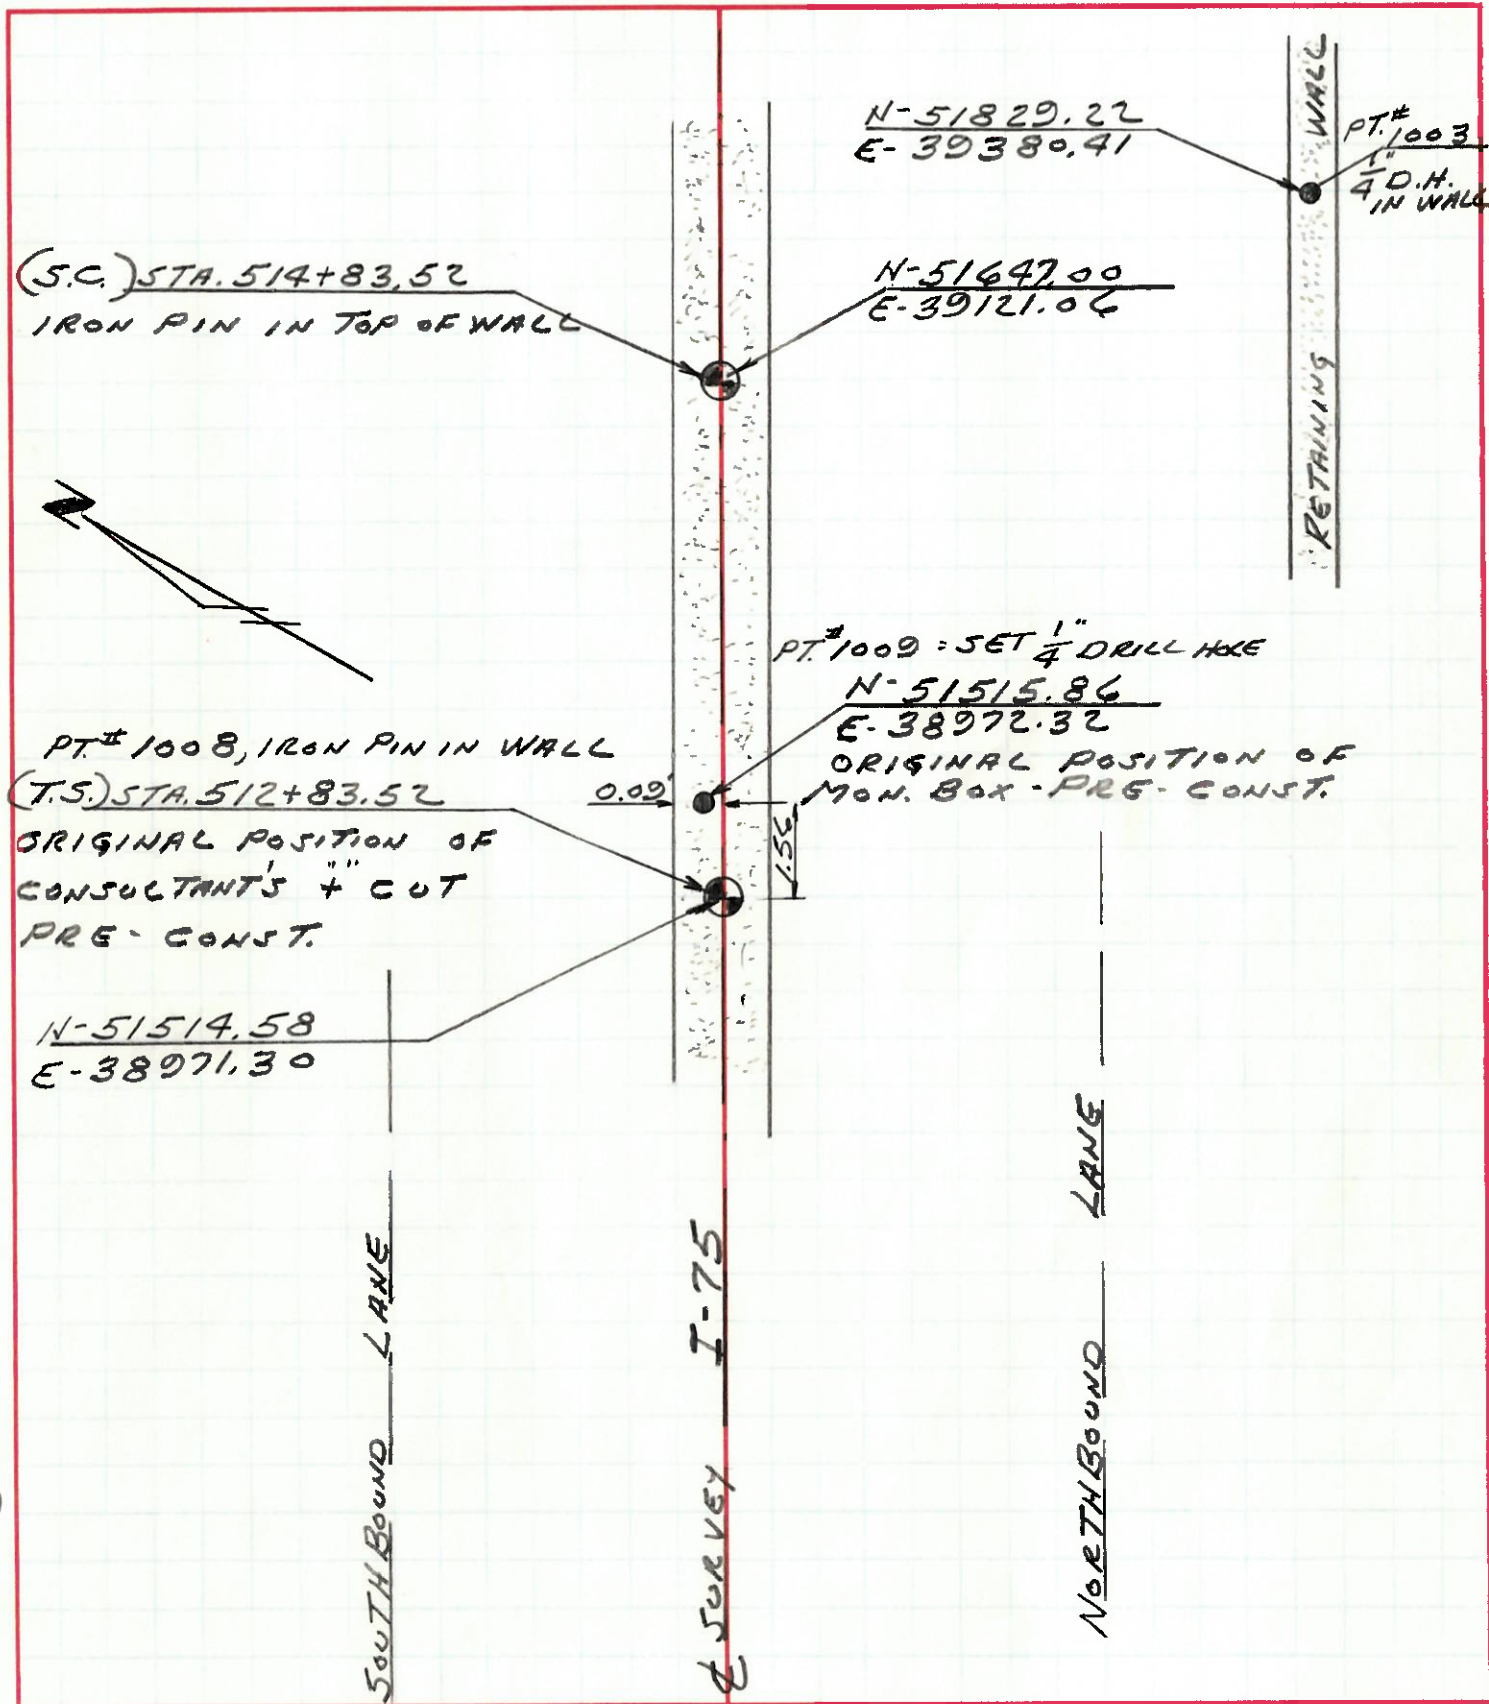 N-51829.22
E-39380.41
RETAINING WALL
PT.# 1003
1/4" D.H.
IN WALL
(S.C.) STA. 514+83.52
IRON PIN IN TOP OF WALL
N-51647.00
E-39121.06
PT.#1009 = SET 1/4" DRILL HOLE
N-51515.86
E-38972.32
ORIGINAL POSITION OF
MON. BOX - PRE-CONST.
PT.# 1008, IRON PIN IN WALL
(T.S.) STA. 512+83.52
ORIGINAL POSITION OF
CONSULTANT'S "+" CUT
PRE-CONST.
0.09'
1.56
N-51514.58
E-38971.30
SOUTHBOUND LANE
℄ SURVEY I-75
NORTHBOUND LANE